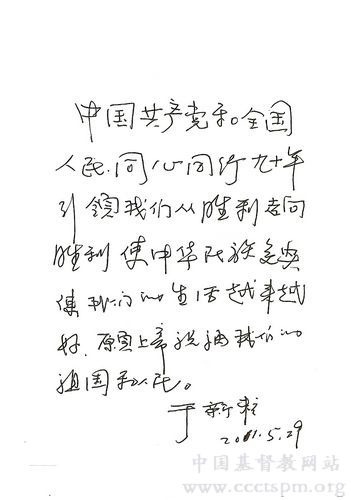 中国共产党和全国
人民.同心同行九十年
引领我们从胜利走向
胜利 使中华民族
使我们的生活越来越
好.愿上帝祝福我们的
祖国和人民。
于新粒
2011.5.29
中国基督教网站
www.ccctspm.org